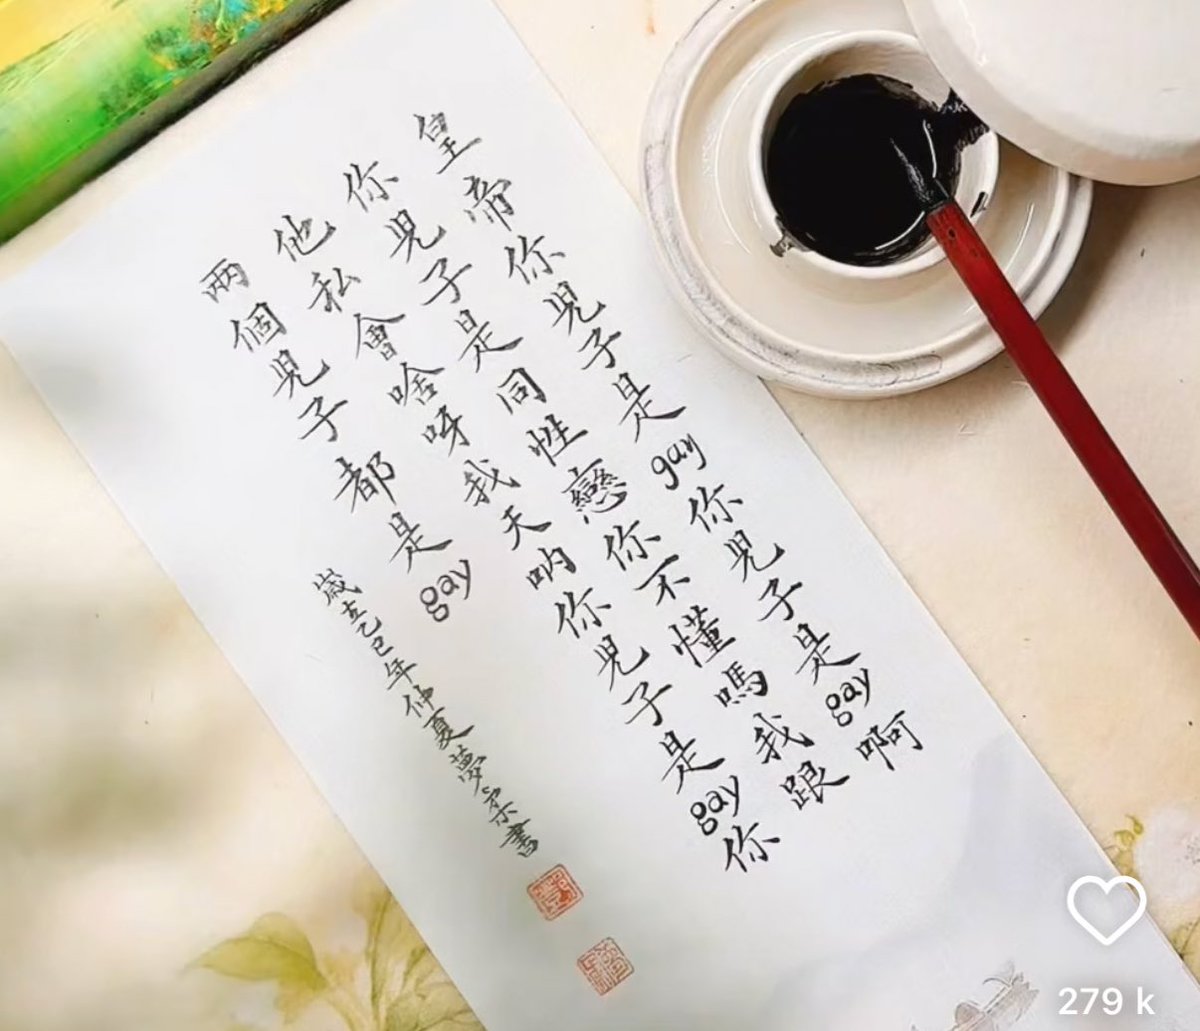 皇帝你兒子是gay你兒子是gay啊
你兒子是同性戀你不懂嗎我跟
他私會啥呀我天吶你兒子是gay你
兩個兒子都是gay
歲在乙巳年仲夏夢書
279 k